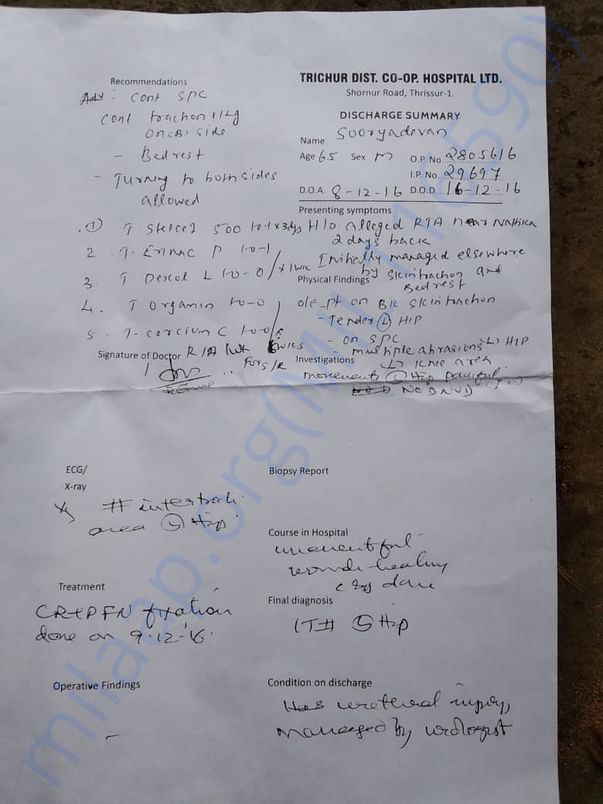 TRICHUR DIST. CO-OP. HOSPITAL LTD.
Shornur Road, Thrissur-1.
DISCHARGE SUMMARY
Name Sooryadevan
Age 65 Sex M O.P. No. 2805616
I.P. No. 29697
D.O.A. 8-12-16 D.O.D. 16-12-16
Presenting symptoms
H/o alleged RTA near Nattika
2 days back
Initially managed elsewhere
by skin traction and
Bed rest
Physical Findings
o/e pt on B/L skin traction
- Tender (L) HIP
- on SPC
- multiple abrasions (L) HIP
(L) knee area
Investigations
movements (L) Hip painful
NO DNVD
Recommendations
Adv: Cont SPC
Cont traction 1 kg
on side
- Bed rest
- Turning to both sides
allowed
① T 500 1-0-1 x 3 days
2. T. P 1-0-1
3. T L 1-0-0
4. T Organin 1-0-0
5. T. C 1-0-0
Signature of Doctor R/A
For S/R
ECG/
X-ray
# intertroch
area (L) Hip
Biopsy Report
Course in Hospital
uneventful
wound healing
done
Treatment
CR & PFN fixation
done on 9.12.16.
Final diagnosis
IT# (L) Hip
Operative Findings
-
Condition on discharge
Has urethral injury,
managed by urologist